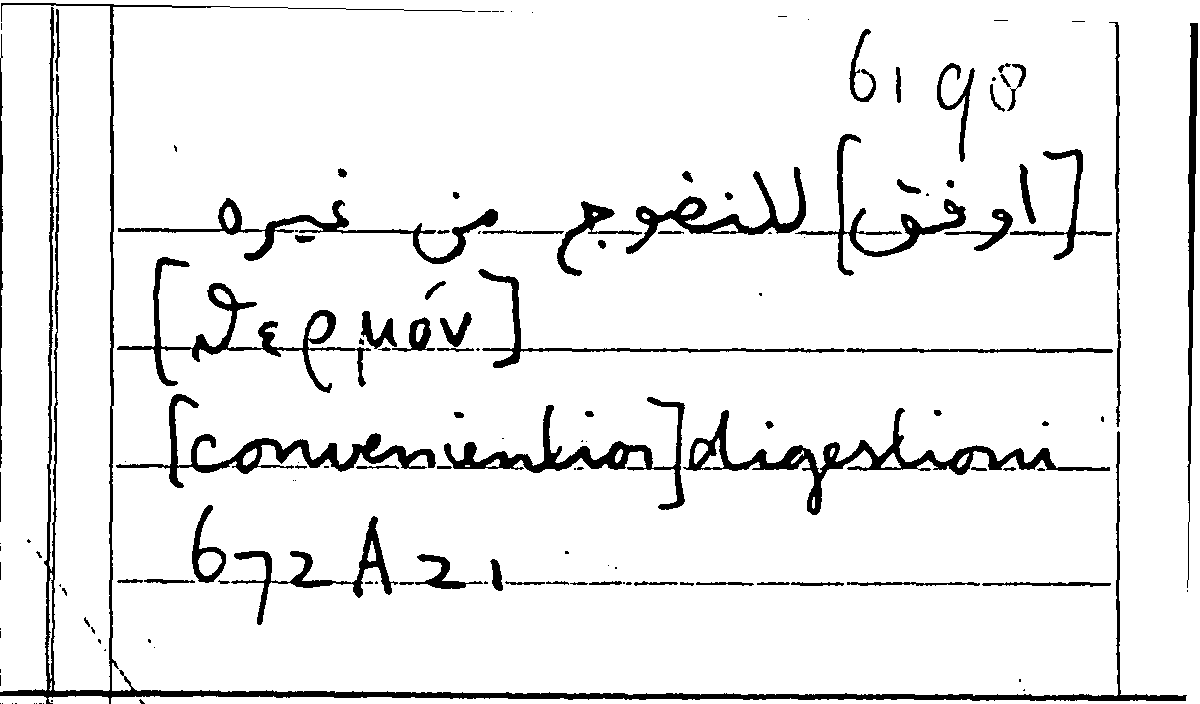 6198
[اوفق] للنضوج من غيره
[θερμόν]
[convenientior] digestioni
672A21